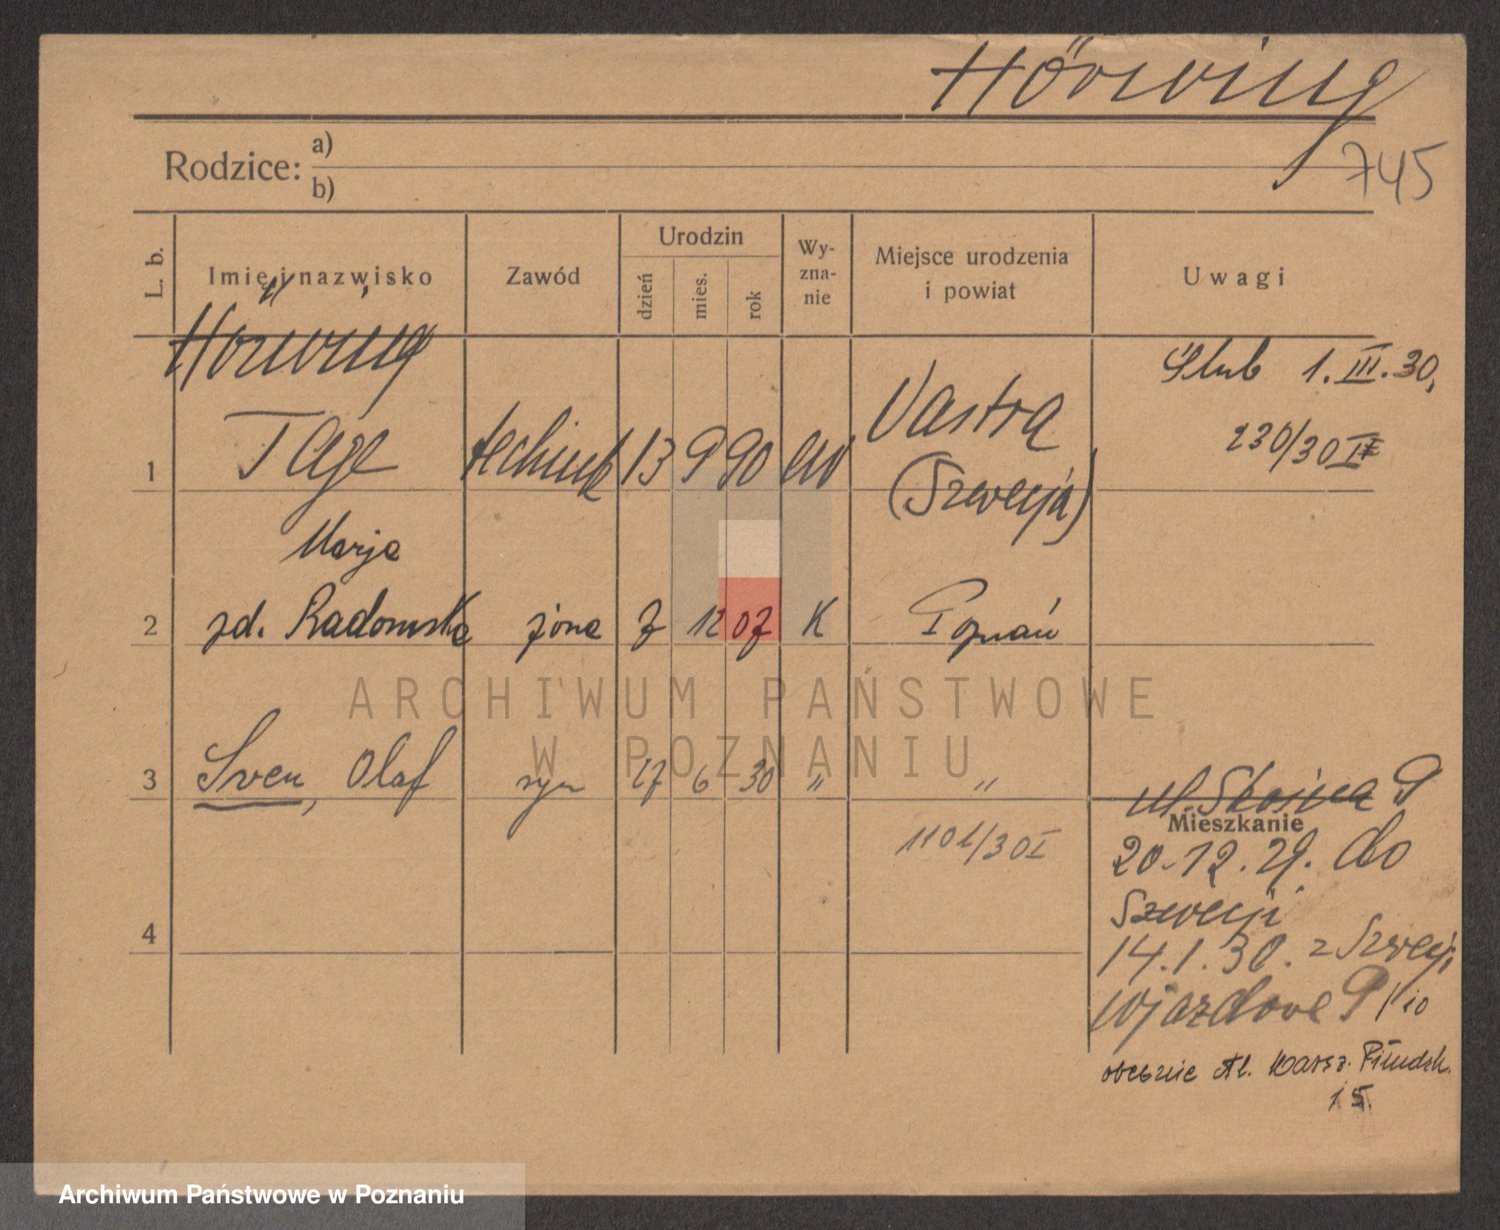 Hörwing
745
Rodzice: a)
b)
L. b. Imię i nazwisko Zawód Urodzin dzień mies. rok Wy-zna-nie Miejsce urodzenia i powiat Uwagi
Hörwing
1 Tage technik 13 9 90 ew Vastra (Szwecja) Ślub 1.III.30,
230/30 II
Marja
2 zd. Radomska żona 7 12 07 K Poznań
ARCHIWUM PAŃSTWOWE
W POZNANIU
3 Sven, Olaf syn 27 6 30 " "
1101/30 I
ul. Skośna 9
Mieszkanie
20.12.29. do
Szwecji
4
14.1.30. z Szwecji
Wjazdowe 9/10
obecnie Al. Marsz. Piłudsk.
15.
Archiwum Państwowe w Poznaniu